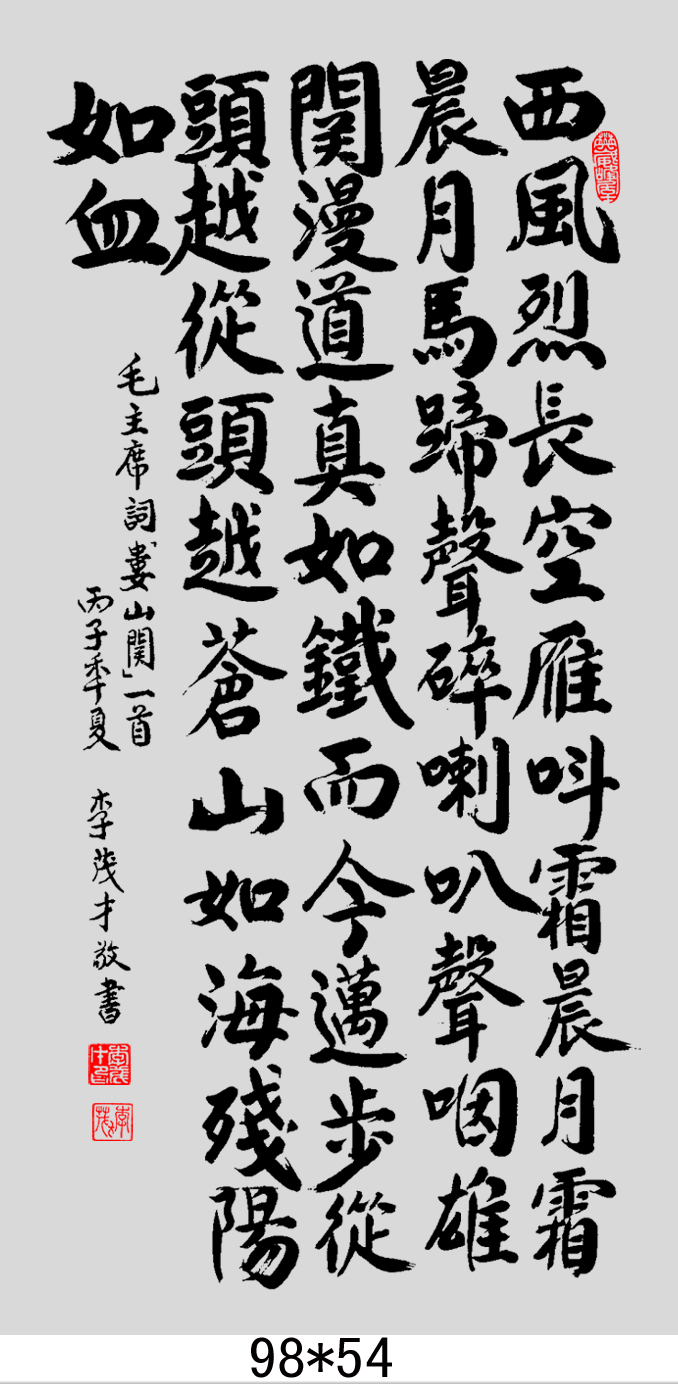 西風烈長空雁呌霜晨月霜
晨月馬蹄聲碎喇叭聲咽雄
関漫道真如鐵而今邁步從
頭越從頭越蒼山如海殘陽
如血
毛主席詞婁山関一首
丙子季夏 李茂才敬書
98*54